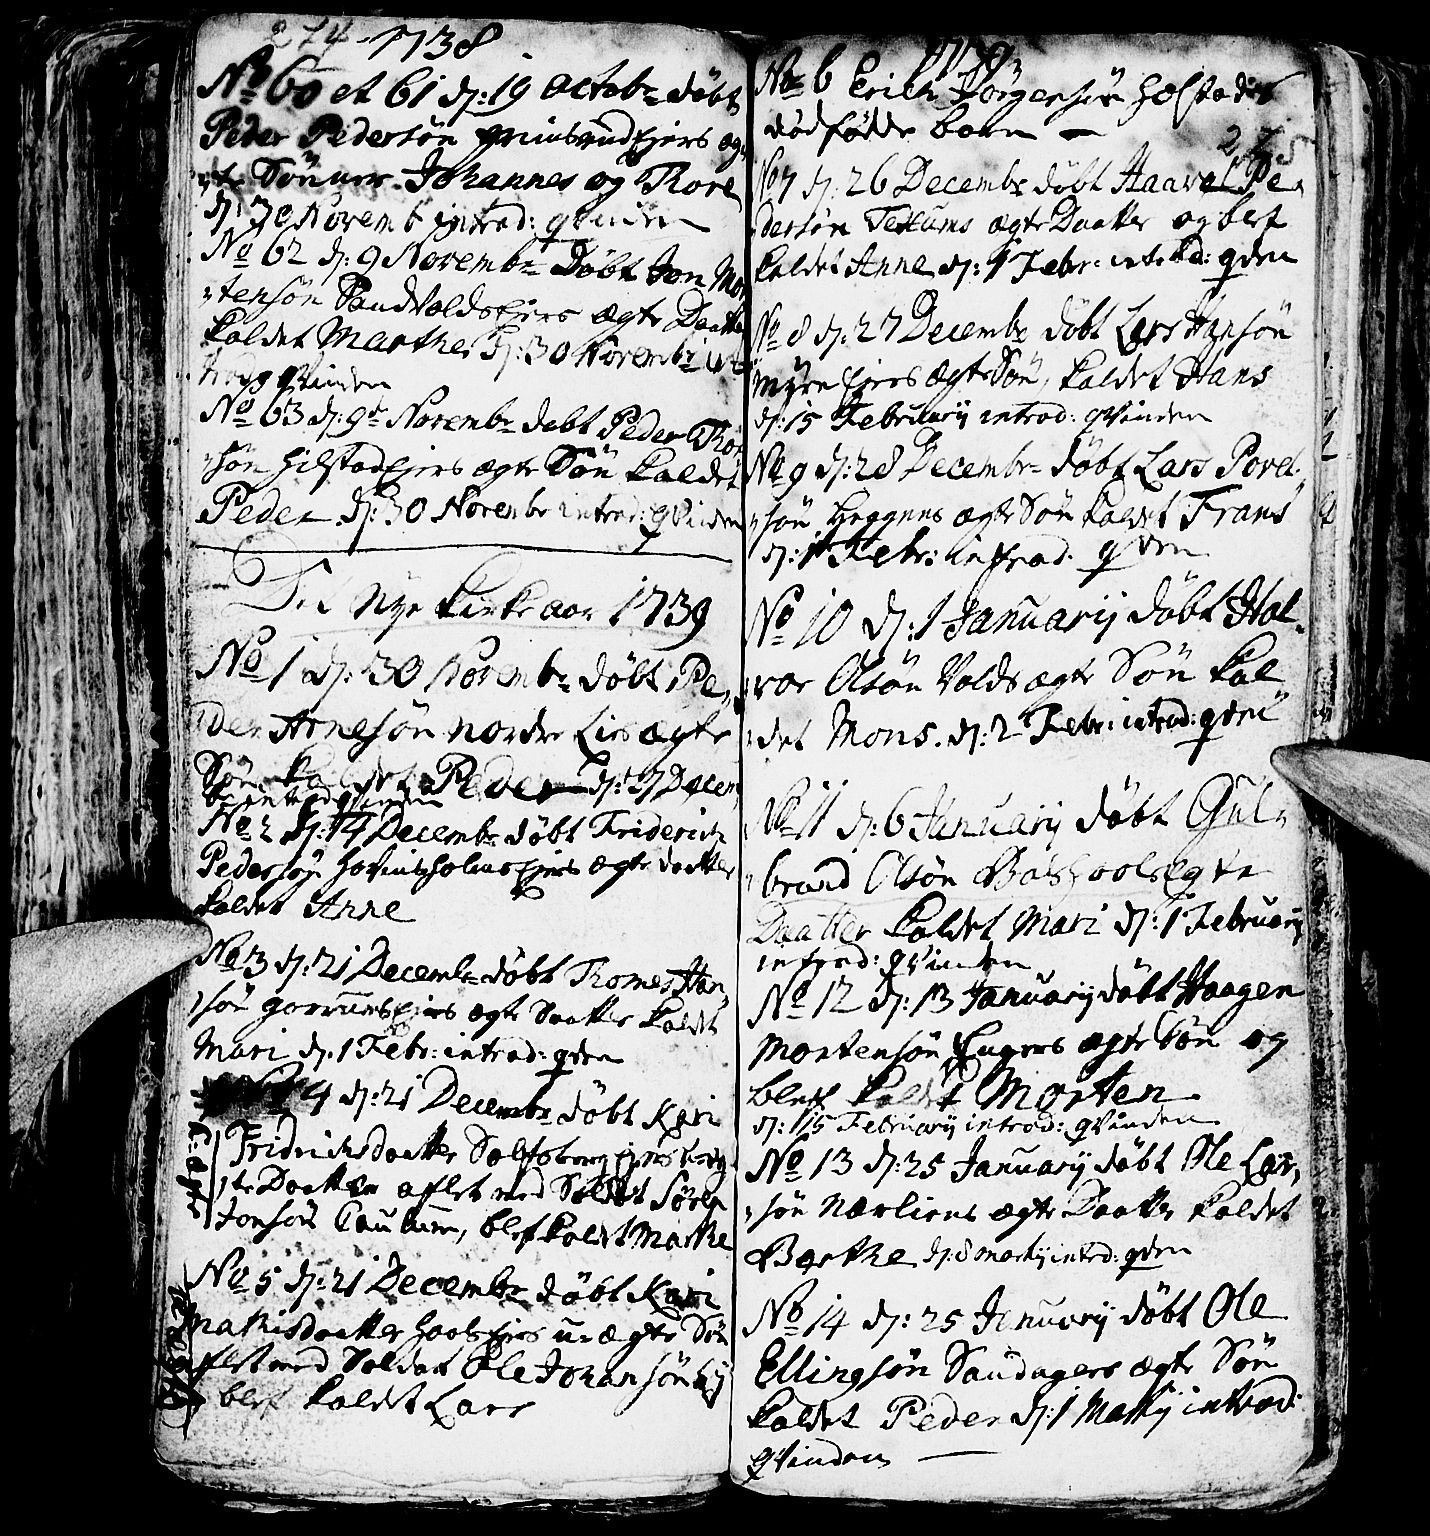 274 1738
No 60 et 61 d: 19 Octobr döbt
Peder Pedersön Grimsrudejers æg
te Sönner Johannes og Thore
d: 30 Novemb introd: qvinden
No 62 d: 9 Novembr Döbt Jon Mor
tensön Sandvoldsejers ægte Daatter
kaldet Marthe d: 30 Novembr int
qvinden
No 63 d: 9de Novembr debt Peder Thor
sön Hilstadejers ægte Sön kaldet
Peder d: 30 Novembr introd: qvinden
Det Nye Kirke aar 1739
No 1 d: 30 Novembr döbt Pe
der Arnesön nordre Lies ægte
Sön kaldet Peder d: 27 Decem
br introd qvinden
No 2 d: 14 Decembr döbt Friderich
Pedersön Hovinsholmsejers ægte daatter
kaldet Anne
No 3 d: 21 Decembr döbt Thomes Han
sön ejers ægte Daatter kaldt
Mari d. 1 Febr: introd: qden
4 d: 21 Decembr döbt Kari
Fridrichsdaatter ejers uæg
te Daatter aflet med Soldat Sören
Jonsön, blef kaldet Marthe
No 5 d: 21 Decembr döbt Kari
Mathisdaatter ejers u-ægte Sön
aflet med Soldat Ole Johansön
blef kaldet Lars
1739
275
No 6 Erich Jörgensön Hælstadies
dödfödde barn
No 7 d: 26 Decembr döbt Haavel Pe
dersön Texums ægte Daatter og blef
kaldet Anne d: 1 Febr: introd: qden
No 8 d: 27 Decembr döbt Lars Hansön
Myreejers ægte Sön, kaldet Hans
d: 15 Februarij introd: qvinden
No 9 d: 28 Decembr döbt Lars Povel
sön Heggens ægte Sön kaldet Frans
d: 1 Febr: introd. qden
No 10 d: 1 Januarij döbt Hal
vor Olsön Volds ægte Sön kal
det Mons. d: 2 Febr: introd: qden
No 11 d: 6 Januarij döbt Gul
brand Olsön ægte
Daatter kaldet Mari d: 1 Februarij
introd: qvinden
No 12 d: 13 Januarij döbt Haagen
Mortensön Engers ægte Sön og
blef kaldet Morten
d: 15 Februarij introd: qvinden
No 13 d: 25 Januarij döbt Ole Lar
sön Nærliens ægte Daatter kaldet
Barthe d: 8 Martij introd: qden
No 14 d: 25 Januarij döbt Ole
Ellingsön Sandagers ægte Sön
kaldet Peder d: 1 Martij introd:
qvinden